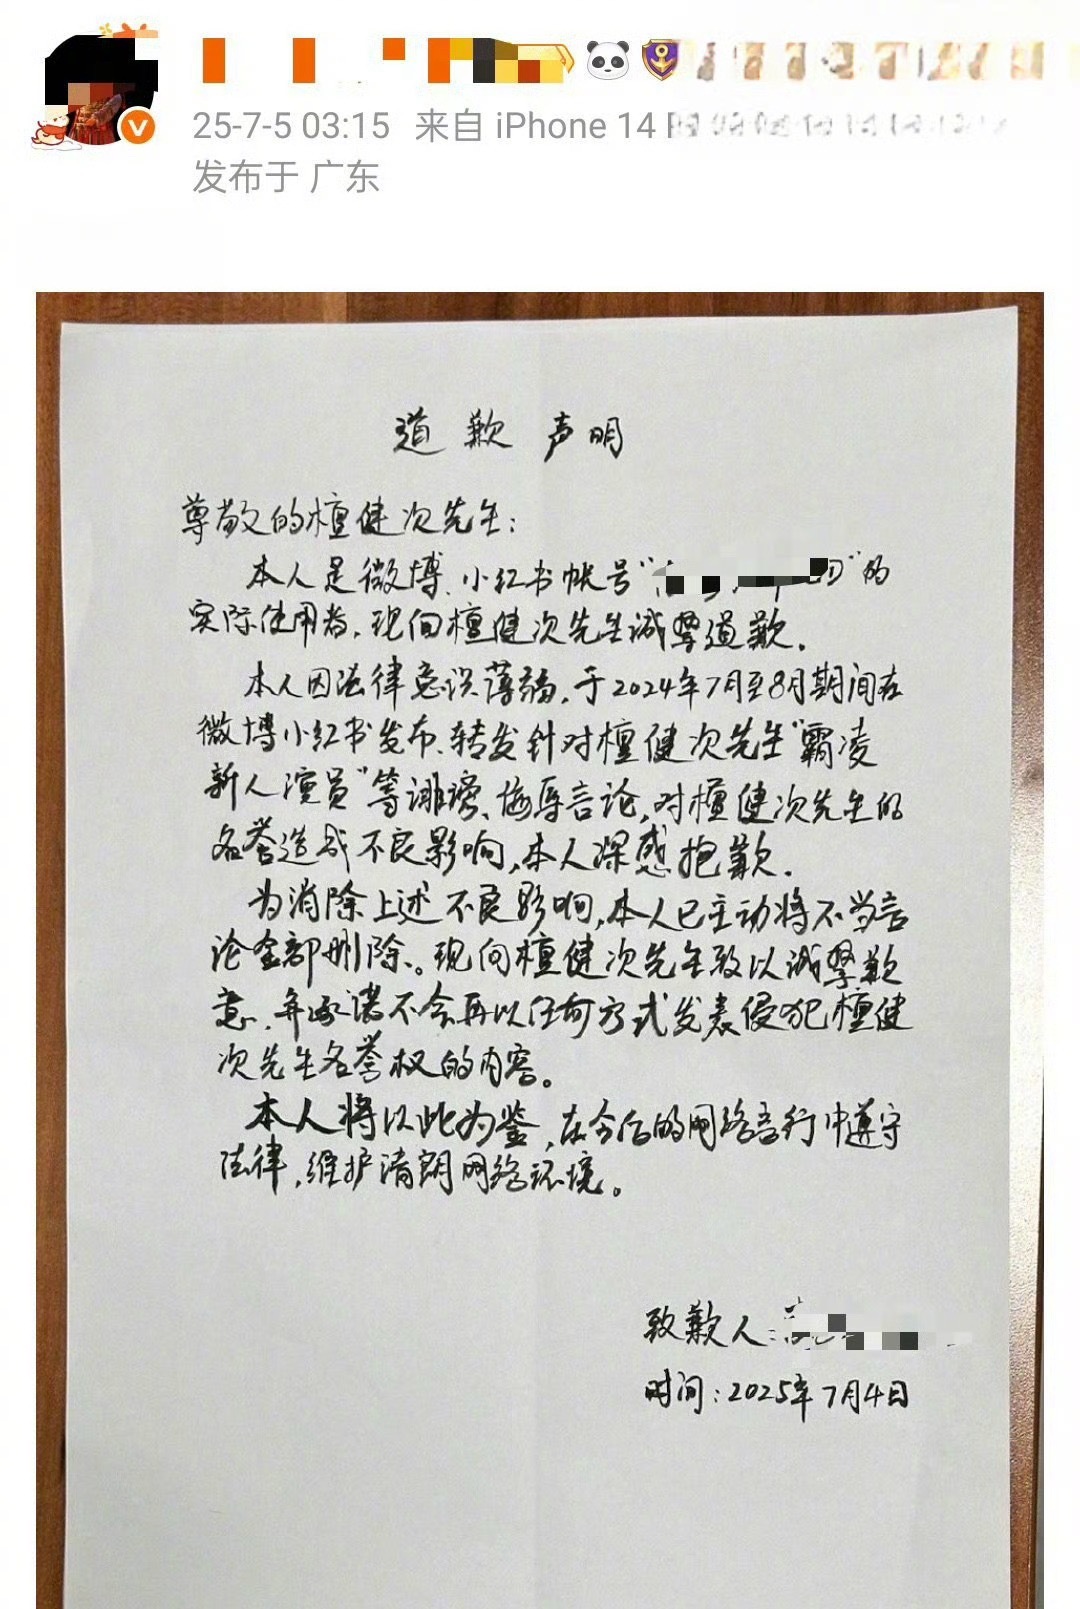 25-7-5 03:15 来自 iPhone 14
发布于 广东
道歉声明
尊敬的檀健次先生：
本人是微博、小红书帐号“ ”的
实际使用者，现向檀健次先生诚挚道歉。
本人因法律意识薄弱，于2024年7月至8月期间在
微博小红书发布、转发针对檀健次先生“霸凌
新人演员”等诽谤、侮辱言论，对檀健次先生的
名誉造成不良影响，本人深感抱歉。
为消除上述不良影响，本人已主动将不当言
论全部删除。现向檀健次先生致以诚挚歉
意，并承诺不会再以任何方式发表侵犯檀健
次先生名誉权的内容。
本人将以此为鉴，在今后的网络言行中遵守
法律，维护清朗网络环境。
致歉人：
时间：2025年7月4日